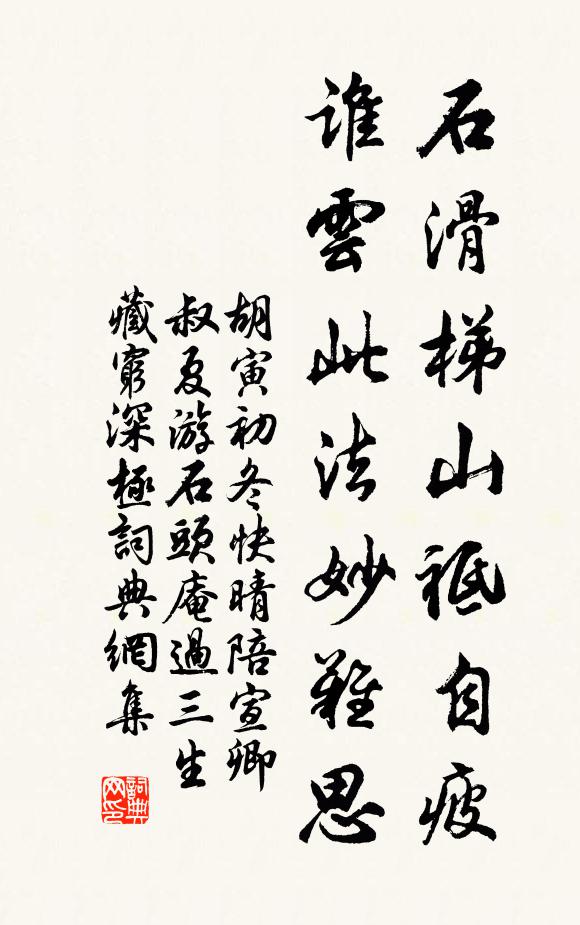 石滑梯山祗自疲
誰雲此法妙難思
胡寅初冬快晴陪宣卿
叔夏游石頭庵過三生
藏窮深極詞典網集
詞典網印